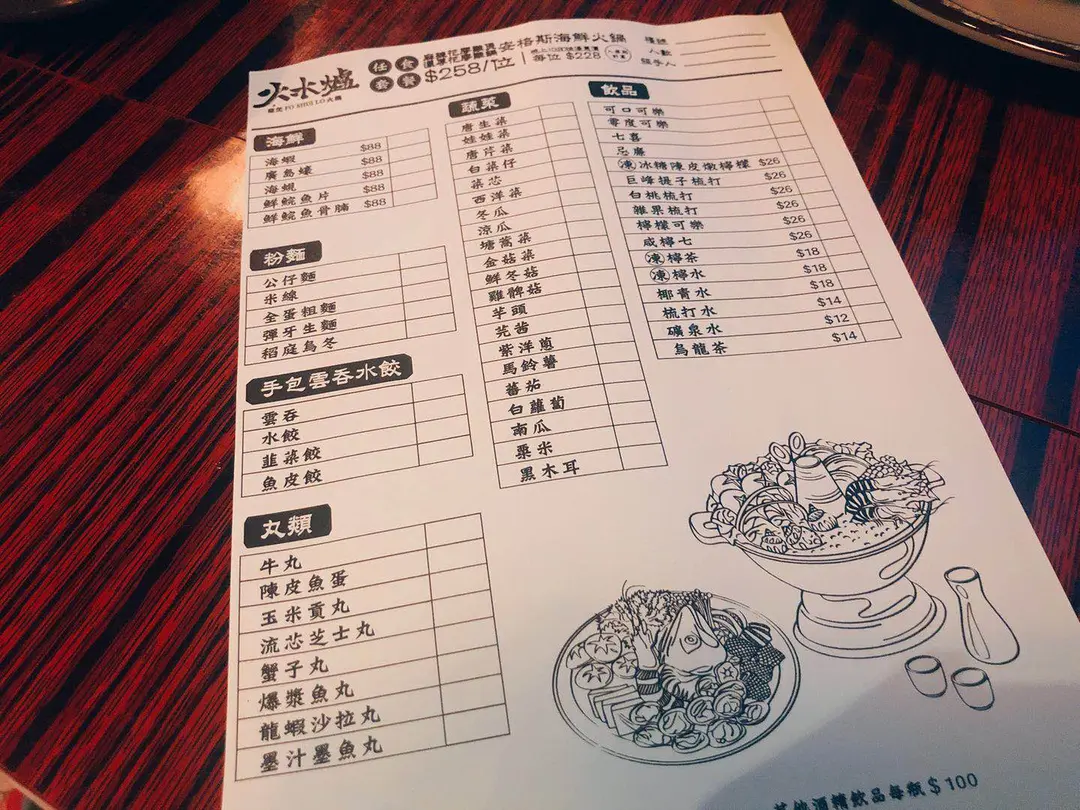 火水爐
FO SHUI LO 火鍋
任食
套餐
麻辣花膠雞煲
濃湯花膠雞鍋
安格斯海鮮火鍋
$258/位
每位 $228
檯號
人數
經手人
海鮮
海蝦 $88
廣島蠔 $88
海蜆 $88
鮮鯇魚片 $88
鮮鯇魚骨腩 $88
粉麵
公仔麵
米線
全蛋粗麵
彈牙生麵
稻庭烏冬
手包雲吞水餃
雲吞
水餃
韮菜餃
魚皮餃
丸類
牛丸
陳皮魚蛋
玉米貢丸
流芯芝士丸
蟹子丸
爆漿魚丸
龍蝦沙拉丸
墨汁墨魚丸
蔬菜
唐生菜
娃娃菜
唐芹菜
白菜仔
菜芯
西洋菜
冬瓜
涼瓜
塘蒿菜
金菇菜
鮮冬菇
雞髀菇
芋頭
芫茜
紫洋蔥
馬鈴薯
蕃茄
白蘿蔔
南瓜
粟米
黑木耳
飲品
可口可樂
零度可樂
七喜
忌廉
凍冰糖陳皮燉檸檬 $26
巨峰提子梳打 $26
白桃梳打 $26
雜果梳打 $26
檸檬可樂 $26
咸檸七 $26
凍檸茶 $18
凍檸水 $18
椰青水 $18
梳打水 $14
礦泉水 $12
烏龍茶 $14
其他酒精飲品每瓶 $100